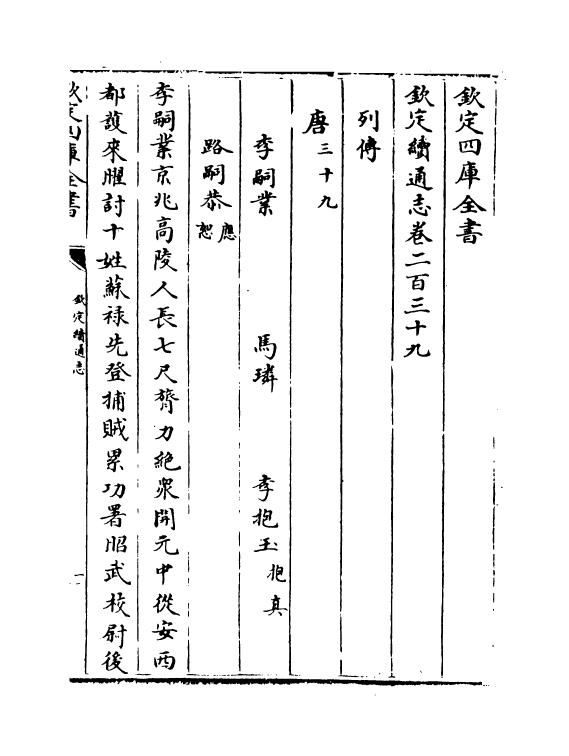 欽定四庫全書
欽定續通志卷二百三十九
列傳
唐三十九
李嗣業 馬璘 李抱玉抱真
路嗣恭應恕
李嗣業京兆高陵人長七尺膂力絶衆開元中從安西
都護來曜討十姓蘇禄先登捕賊累功署昭武校尉後
欽定四庫全書
欽定續通志
一